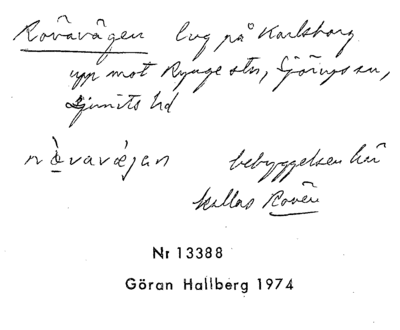 Rövavägen lvg på Karlsborg
upp mot Rynge stn, Sjörups sn,
Ljunits hd
rø̀vavǽjan bebyggelsen här
kallas Röven
Nr 13388
Göran Hallberg 1974